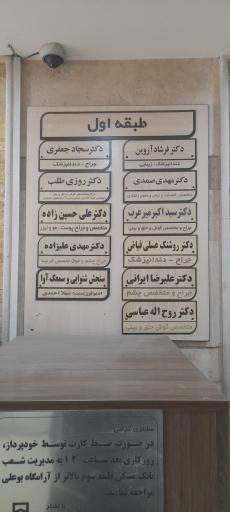 طبقه اول
دکتر فرشاد آروین
دندانپزشک - زیبایی
دکتر سجاد جعفری
جراح - دندانپزشک
دکتر مهدی صمدی
دکتر روزی طلب
دکتر سید اکبر میرعرب
دکتر علی حسین زاده
دکتر روشنک عسلی فیاض
جراح - دندانپزشک
دکتر مهدی علیزاده
دکتر علیرضا ایرانی
جراح و متخصص چشم
سنجش شنوایی و سمعک آوا
دکتر روح اله عباسی
متخصص گوش حلق و بینی
مشتری گرامی
در صورت ضبط کارت توسط خودپرداز،
روز کاری بعد ساعت ۱۳ به مدیریت شعب
بانک مسکن پلیته سوم بالاتر از آرامگاه بوعلی
مراجعه نمایید
با تشکر